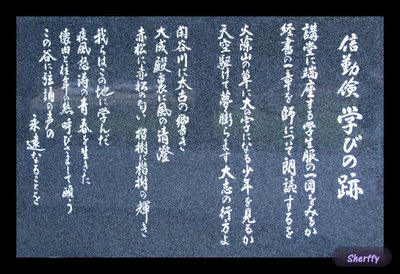 信勤倹 学びの跡
講堂に端座する学生服の一団をみるか
経書の一章を師について朗読するを
火除山の草に大の字になる少年を見るか
天空駆ける夢膨らます大志の行方よ
閑谷川に太古の響き
大成殿裏に風の清澄
赤松に赤松の匂い 楷樹に楷樹の輝き
我らはこの地に学んだ
疾風怒涛の青春を生きた
懐旧と往年の熱 呼びさまして願う
この谷に弦誦のものの
永遠なることを
Sherffy